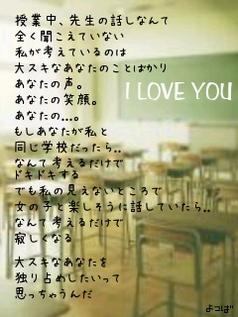 授業中、先生の話しなんて
全く聞こえていない
私が考えているのは
大スキなあなたのことばかり
あなたの声。
あなたの笑顔。
あなたの...。
I LOVE YOU
もしあなたが私と
同じ学校だったら..
なんて考えるだけで
ドキドキする
でも私の見えないところで
女の子と楽しそうに話していたら..
なんて考えるだけで
寂しくなる
大スキなあなたを
独り占めしたいって
思っちゃうんだ
よつば